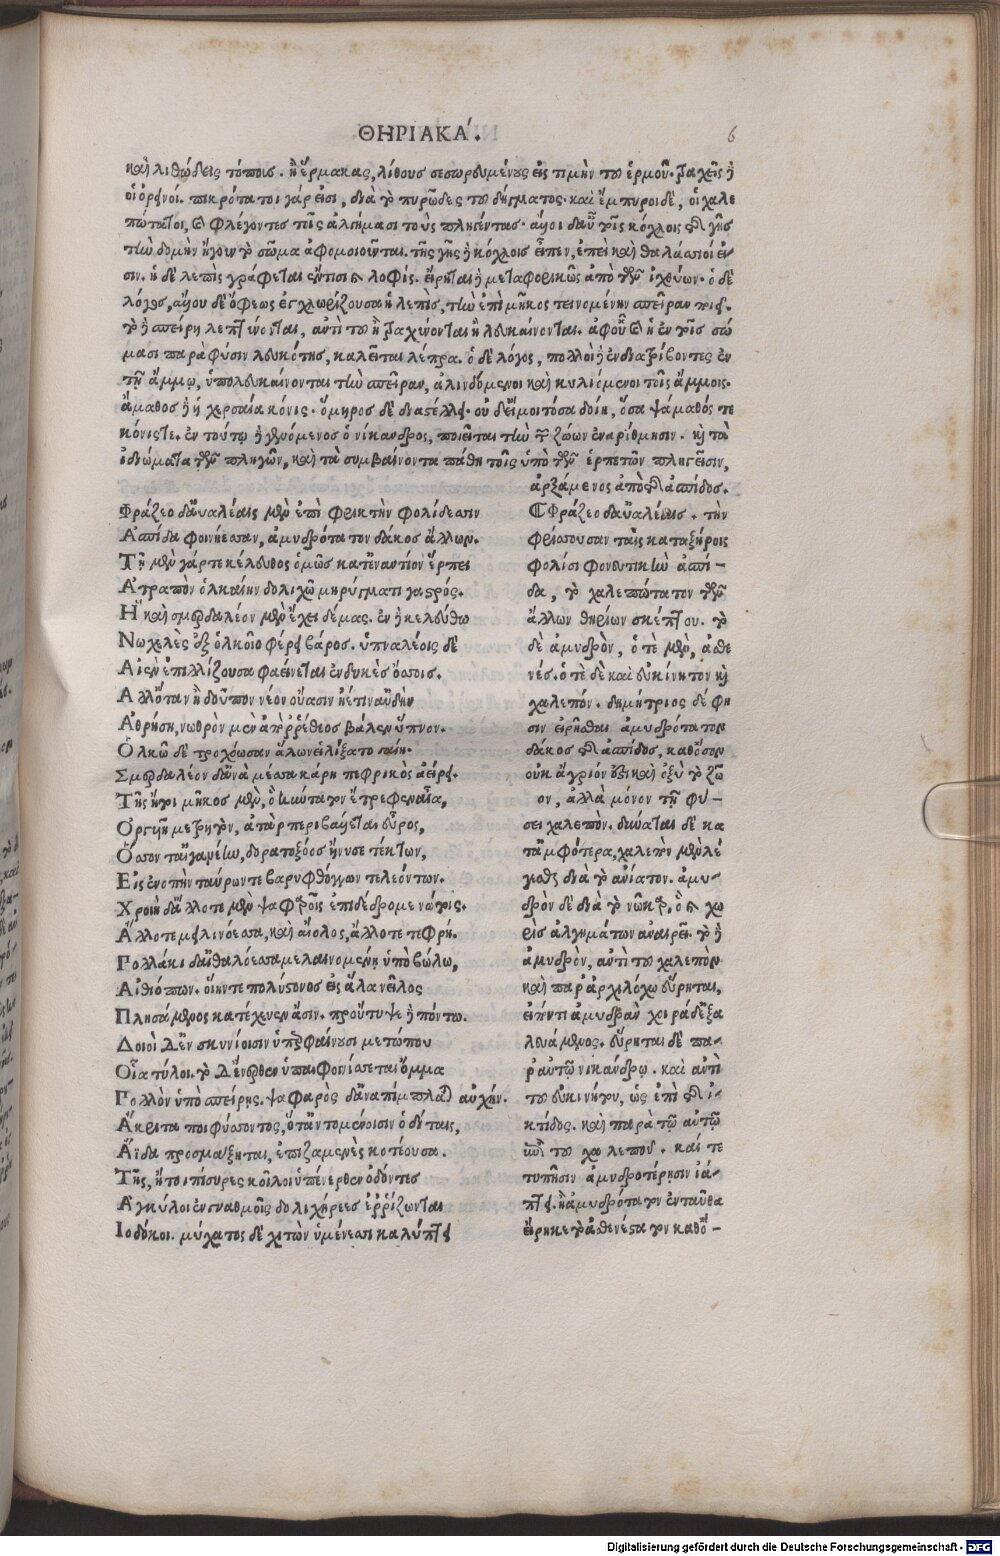 ΘΗΡΙΑΚΆ.
6
καὶ λιθώδεις τόποις. ἢ ἕρμακας, λίθους σεσωρευμένους εἰς τιμὴν τοῦ ἑρμοῦ. τραχεῖς
οἱ ὀρφνοί. πικρότατοι γάρ εἰσι, διὰ τὸ πυρῶδες τοῦ δήγματος. καὶ ἔμπυροι δὲ, οἱ χαλε
πώτατοι, καὶ φλέγοντες τοῖς ἀλγήμασι τοὺς πληγέντας. γῆς
τὴν δομὴν ἤγουν τὸ σῶμα ἀφομοιοῦνται. τῆς γῆς κόχλοις εἶπεν, ἐπεὶ καὶ θαλάσσιοί εἰ-
σιν. ἡ δὲ λεπὶς γράφεται λοφίς. εἴρηται μεταφορικῶς ἀπὸ τῶν ἰχθύων. ὁ δὲ
λόγος, ὄφεως ἐγχλωρίζουσα ἡ λεπὶς, τὴν ἐπὶ μῆκος τεινομένην σπεῖραν
τὸ σπείρη ἀντὶ τοῦ ἢ τραχύνονται ἢ λευκαίνονται. ἀφοῦ καὶ ἡ ἐν τοῖς σώ
μασι παρὰ φύσιν λευκότης, καλεῖται λέπρα. ὁ δὲ λόγος, πολλοὶ ἐνδιατρίβοντες ἐν
τῇ ἄμμῳ, ὑπολευκαίνονται τὴν σπεῖραν, ἀλινδόμενοι καὶ κυλιόμενοι τοῖς ἄμμοις.
ἄμαθος ἡ χερσαία κόνις. ὅμηρος δὲ διαστέλλει. οὐδ' εἴ μοι τόσα δοίη, ὅσα ψάμαθός τε
κόνις τε. ἐν τούτῳ γενόμενος ὁ νίκανδρος, ποιεῖται τὴν τῶν ζώων ἐναρίθμησιν. καὶ τὰ
ἰδιώματα τῶν πληγῶν, καὶ τὰ συμβαίνοντα πάθη τοῖς ὑπὸ τῶν ἑρπετῶν πληγεῖσιν,
ἀρξάμενος ἀπὸ τῆς ἀσπίδος.
Φράζεο δ' αὐαλέαις μὲν ἐπὶ φρικτὴν φολίδεσσιν
Ἀσπίδα φοινήεσσαν, ἀμυδρότατον δάκος ἄλλων.
Τῇ μὲν γάρ τε κέλευθος ὁμῶς κατεναντίον ἕρπει
Ἀτραπὸν ὁλκαίην δολιχῷ μηρύγματι γαστρός.
Ἣ καὶ σμερδαλέον μὲν ἔχει δέμας. ἐν κελεύθῳ
Νωχελὲς ἐξ ὁλκοῖο φέρει βάρος. ὑπναλέοις δὲ
Αἰὲν ἐπιλλίζουσα φαείνεται ἐνδυκὲς ὄσσοις.
Ἀλλ' ὅταν ἢ δοῦπον νέον οὔασιν ἠέ τιν' αὐδὴν
Ἀθρήσῃ, νωθρὸν μὲν ἀπὸ ῥέθεος βάλεν ὕπνον.
Ὁλκῷ δὲ τροχόεσσαν ἅλων εἱλίξατο γαίη.
Σμερδαλέον δ' ἀνὰ μέσσα κάρη πεφρικὸς ἀείρει.
Τῆς ἤτοι μῆκος μὲν, ὃ κύντατον ἔτρεφεν αἶα,
Ὀργυιῇ μετρητὸν, ἀτὰρ περιβαίνεται εὖρος,
Ὅσσον τ' αἰγανέῃν, δορατοξόος ἤνυσε τέκτων,
Εἰς ἐνοπὴν ταύρων τε βαρυφθόγγων τε λεόντων.
Χροιὴ δ' ἄλλοτε μὲν ψαφαροῖς ἐπιδέδρομε νώτοις.
Ἄλλοτε μηλινόεσσα, καὶ αἴολος, ἄλλοτε τεφρή.
Πολλάκι δ' αἰθαλόεσσα μελαινομένη ὑπὸ βώλῳ,
Αἰθιόπων. οἵην τε πολύστονος εἰς ἅλα νεῖλος
Πλησάμενος κατέχευεν ἄσιν. προὔτυψε πόντῳ.
Δοιοὶ δ' ἐν σκυνίοισιν ὑπερφαίνουσι μετώπου
Οἷα τύλοι. τὸ δ' ἔνερθεν ὑπαὶ φοινίσσεται ὄμμα
Πολλὸν ὑπὸ σπείρης. ψαφαρὸς δ' ἀναπίμπλαται αὐχὴν.
Ἄκριτα ποιφύσσοντος, ὅτ' ἂν τομένοισιν ὁδίταις,
Ἄϊδα προσμάξηται, ἐπιζαμενὲς κοτέουσα.
Τῆς, ἤτοι πίσυρες κοῖλοι ὑπένερθεν ὀδόντες
Ἀγκύλοι ἐν γναθμοῖς δολιχήρεες ἐρρίζωνται
Ἰοδόκοι. μύχατος δὲ χιτὼν ὑμένεσσι καλύπτει
Φράζεο δ' αὐαλέαις. τὴν
φρίσσουσαν ταῖς καταξήροις
φολίσι φονευτικὴν ἀσπί-
δα, τὸ χαλεπώτατον τῶν
ἄλλων θηρίων σκέπτου. τὸ
δὲ ἀμυδρὸν, ὁτὲ μὲν, ἀσθε
νές. ὁτὲ δὲ καὶ εὐκίνητον καὶ
χαλεπόν. δημήτριος δέ φη
σιν εἰρῆσθαι ἀμυδρότατον
δάκος τῆς ἀσπίδος, καθ' ὅσον
οὐκ ἄγριόν ἐστι καὶ ὀξὺ τὸ ζῶ
ον, ἀλλὰ μόνον τῇ φύ-
σει χαλεπόν. δύναται δὲ κα
τ' ἀμφότερα, χαλεπὸν μὲν λέ
γεσθαι διὰ τὸ ἀνίατον. ἀμυ-
δρὸν δὲ διὰ τὸ νωθρόν, χω
ρὶς ἀλγημάτων ἀναιρεῖ. τὸ
ἀμυδρὸν, ἀντὶ τοῦ χαλεπὸν
καὶ παρ' ἀρχιλόχῳ εὕρηται,
ἀμυδρὰν χοιράδ' ἐξα
λευάμενος. εὕρηται δὲ πα-
ρ' αὐτῷ νικάνδρῳ. καὶ ἀντὶ
τοῦ εὐκινήτου, ὡς ἐπὶ τῆς ἰ-
κτίδος. καὶ παρὰ τῷ αὐτῷ
ἐπὶ τοῦ χαλεποῦ. καί τε
τυπῇσιν ἀμυδροτέρῃσιν ἰά-
πτει. ἢ ἀμυδρότατον ἐνταῦθα
εἴρηκε τὸ ἀσθενέστατον καθ' ὃ-
Digitalisierung gefördert durch die Deutsche Forschungsgemeinschaft - DFG